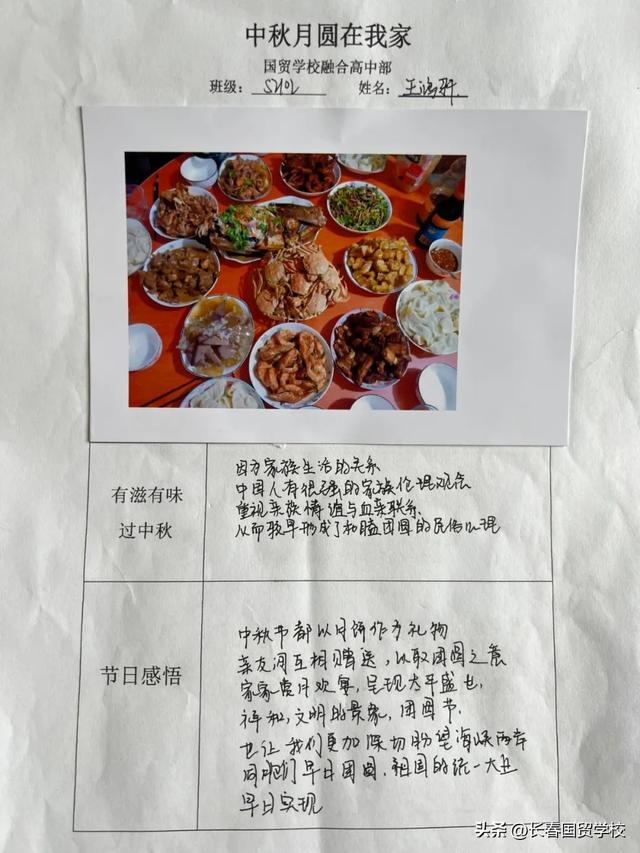 中秋月圆在我家
国贸学校融合高中部
班级： S2102 姓名： 王鸿轩
有滋有味
过中秋
因为家族生活的关系
中国人有很强的家族伦理观念
重视亲族情谊与血亲联系、
从而较早形成了和睦团圆的民俗心理
节日感悟
中秋节都以月饼作为礼物
亲友间互相赠送，以取团圆之意
家家赏月欢宴，呈现太平盛世，
祥和，文明的景象，团圆节，
也让我们更加深切盼望海峡两岸
同胞们早日团圆，祖国的统一大业
早日实现
头条@长春国贸学校